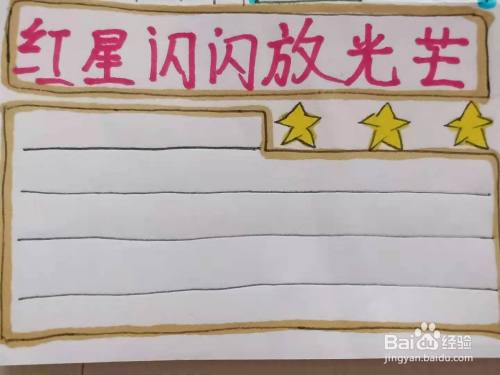 红星闪闪放光芒
Bai 经验
jingyan.baidu.com